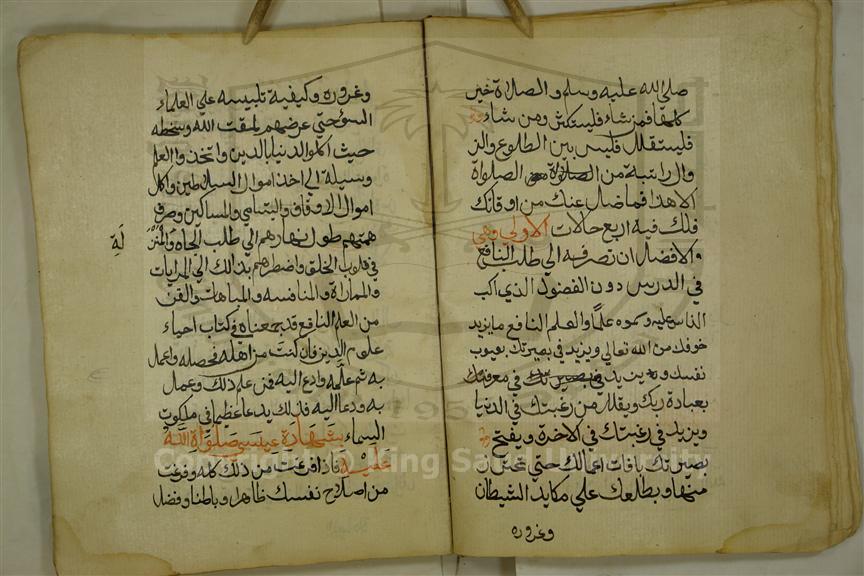 صلي الله عليه وسلم والصلاة خير
كلها فمن شاء فليستكثر ومن شاء
فليستقلل فليس بين الطلوع والز
وال راتبة من الصلواة الصلواة
الا هذا فما فضل عنك من اوقاتك
فلك فيه اربع حالات الاولي وهي
الافضل ان تصرفه الي طلب النافع
في الدرس دون الفضول الذي اكب
الناس عليه وسموه علما والعلم النافع ما يزيد
خوفك من الله تعالي ويزيد في بصيرتك بعيوب
نفسك ويزيد في معرفتك
بعبادة ربك ويقلل من رغبتك في الدنيا
ويزيد في رغبتك في الاخرة ويفتح
بصيرتك بافات اعمالك حتي تحترز
منها ويطلعك علي مكايد الشيطان
وغروره
وغروره وكيفية تلبيسه علي العلماء
السؤ حتي عرضهم لمقت الله وسخطه
حيث اكلوا الدنيا بالدين واتخذوا العلم
وسيلة الي اخذ اموال السلاطين واكل
اموال الاوقاف واليتامي والمساكين وصرف
همتهم طول نهارهم الي طلب الجاه والمنز
لة
في قلوب الخلق واضطرهم بذالك الي المرايات
والمماراة والمنافسه والمباهات والفن
من العلم النافع قد جمعناه في كتاب احياء
علوم الدين فان كنت من اهله فحصله واعمل
به ثم علمه وادع اليه فمن علم ذلك وعمل
به ودعا اليه فذلك يدعا عظيم في ملكوت
السماء بشهادة عيسي صلواة الله
عليه فاذا فرغت من ذلك كله وفرغت
من اصلاح نفسك ظاهرا وباطنا وفضل
Copyright © King Saud University
1957